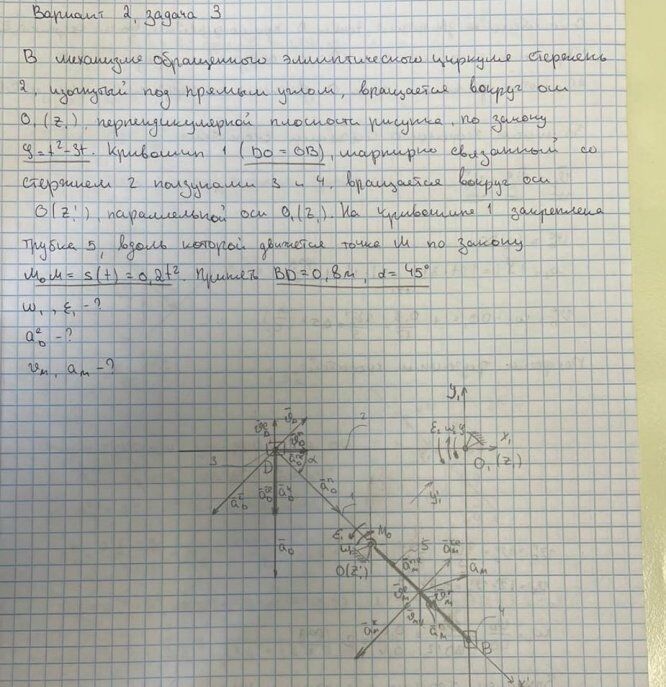 Вариант 2, задача 3
В механизме обращенного эллиптического циркуля стержень
2, изогнутый под прямым углом, вращается вокруг оси
O₁(z₁), перпендикулярной плоскости рисунка, по закону
φ=t²-3t. Кривошип 1 (DO=OB), шарнирно связанный со
стержнем 2 ползунами 3 и 4, вращается вокруг оси
O(z₁'), параллельной оси O₁(z₁). На кривошипе 1 закреплена
трубка 5, вдоль которой движется точка M по закону
M₀M = s(t) = 0,2t². Принять BD=0,8м, α=45°
ω₁, ε₁ - ?
-?
vₘ, aₘ - ?
y₁
2
x₁
O₁(z₁)
3
D
α
1
y₁'
M₀
5
O(z₁')
aₘ
4
B
x'